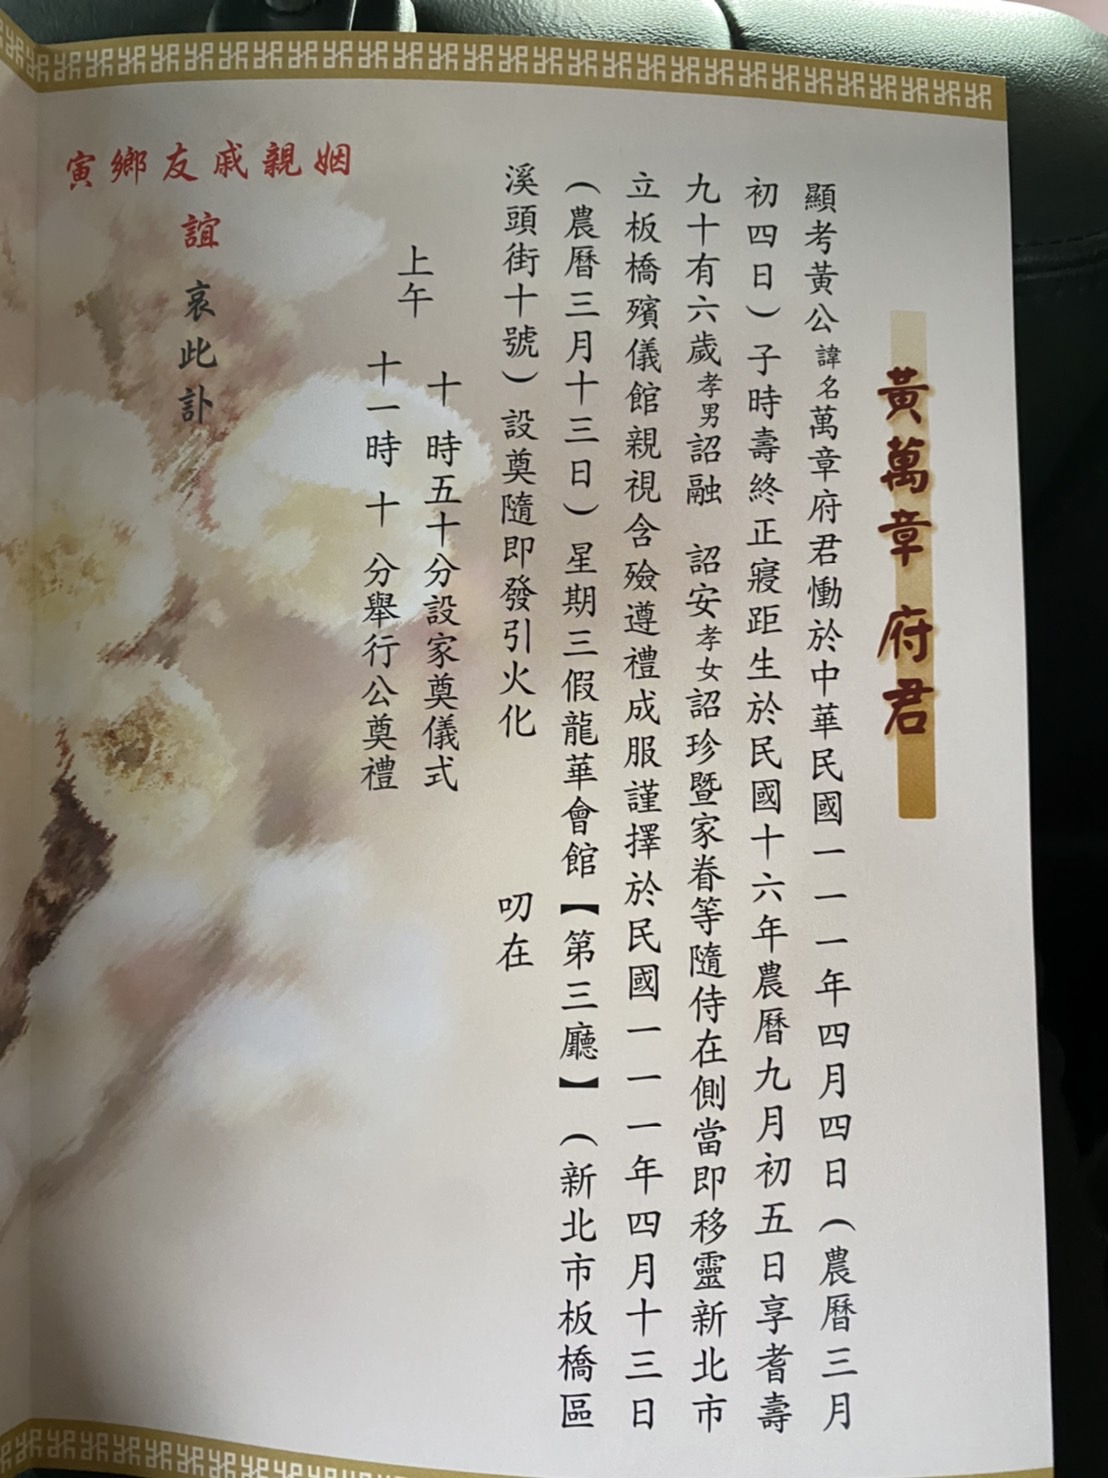 黃萬章 府君
顯考黃公諱名萬章府君慟於中華民國一一一年四月四日（農曆三月
初四日）子時壽終正寢距生於民國十六年農曆九月初五日享耆壽
九十有六歲孝男詔融 詔安孝女詔珍暨家眷等隨侍在側當即移靈新北市
立板橋殯儀館親視含殮遵禮成服謹擇於民國一一一年四月十三日
（農曆三月十三日）星期三假龍華會館【第三廳】（新北市板橋區
溪頭街十號）設奠隨即發引火化 叨在
上午
十時五十分設家奠儀式
十一時十分舉行公奠禮
姻親戚友鄉寅
誼
哀此訃